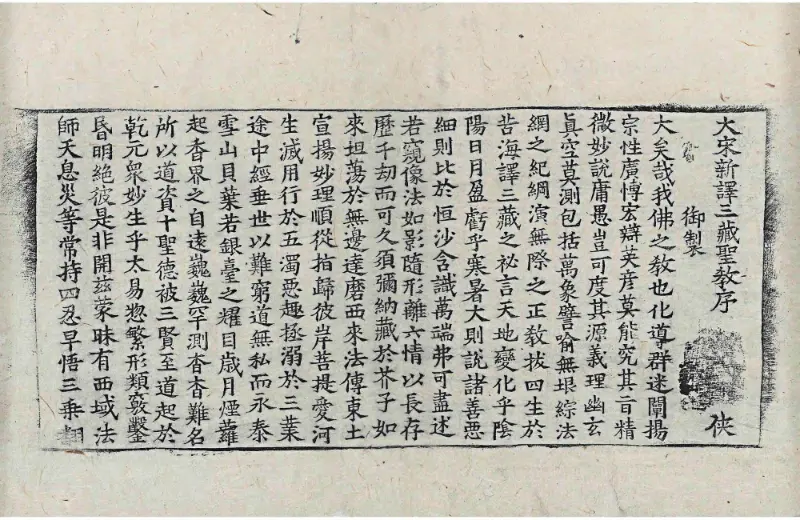 大宋新譯三藏聖教序
俠
御製
大矣哉我佛之教也化導群迷闡揚
宗性廣博宏辯英彦莫能究其旨精
微妙説庸愚豈可度其源義理幽玄
真空莫測包括萬象譬喻無垠綜法
網之紀綱演無際之正教拔四生於
苦海譯三藏之祕言天地變化乎陰
陽日月盈虧乎寒暑大則說諸善惡
細則比於恒沙含識萬端弗可盡述
若窺像法如影隨形離六情以長存
歷千劫而可久須彌納藏於芥子如
來坦蕩於無邊達磨西來法傳東土
宣揚妙理順從指歸彼岸菩提愛河
生滅用行於五濁惡趣拯溺於三業
途中經垂世以難窮道無私而永泰
雪山貝葉若銀臺之耀日歲月煙蘿
起香界之自遠巍巍罕測杳杳難名
所以道資十聖德被三賢至道起於
乾元衆妙生乎太易惣繁形類竅鑿
昏明絶彼是非開兹蒙昧有西域法
師天息災等常持四忍早悟三乘翻